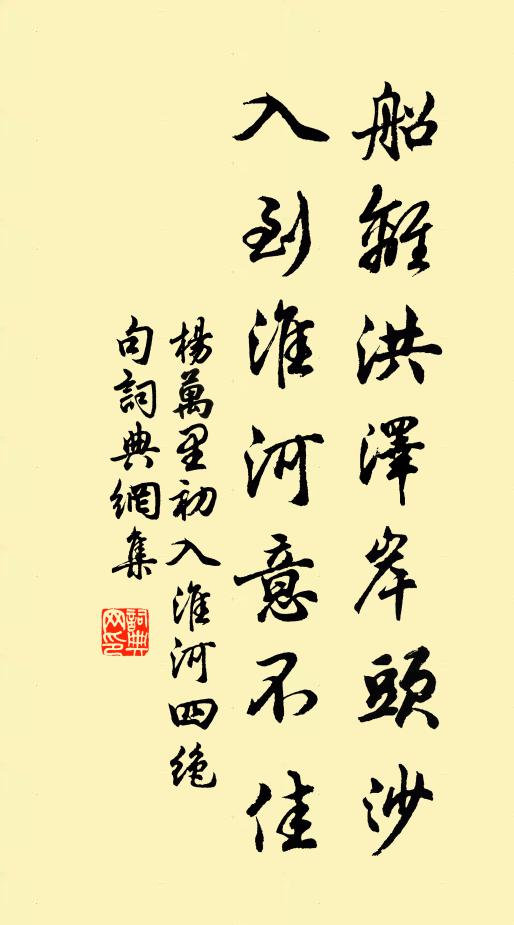 船離洪澤岸頭沙
入到淮河意不佳
楊萬里初入淮河四绝
句詞典網集
詞典
网印